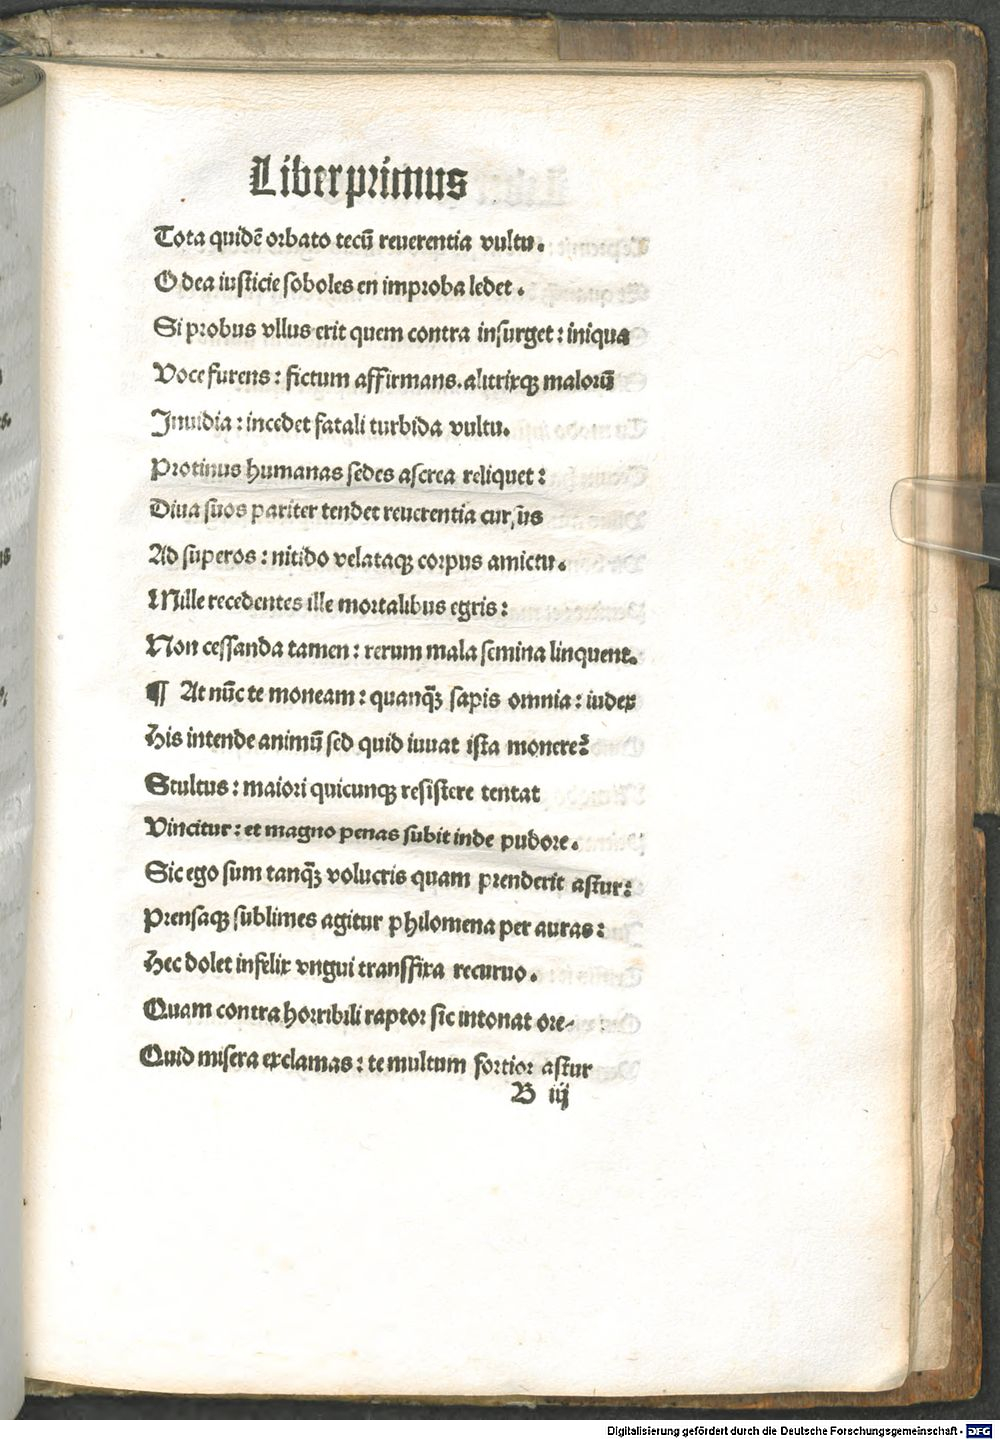 Liber primus
Tota quidē orbato tecū reuerentia vultu.
O dea iusticie soboles en improba ledet.
Si probus vllus erit quem contra insurget: iniqua
Voce furens: fictum affirmans. altrixqꝫ malorū
Inuidia: incedet fatali turbida vultu.
Protinus humanas sedes aserea reliquet:
Diua suos pariter tendet reuerentia cursus
Ad superos: nitido velataqꝫ corpus amictu.
Mille recedentes ille mortalibus egris:
Non cessanda tamen: rerum mala semina linquent.
¶ At nūc te moneam: quanq̄ꝫ sapis omnia: iudex
His intende animū sed quid iuuat ista monere?
Stultus: maiori quicunqꝫ resistere tentat
Vincitur: et magno penas subit inde pudore.
Sic ego sum tanq̄ꝫ volucris quam prenderit astur:
Prensaqꝫ sublimes agitur philomena per auras:
Hec dolet infelix vngui transfixa recuruo.
Quam contra horribili raptor sic intonat ore
Quid misera exclamas: te multum fortior astur
B iij
Digitalisierung gefördert durch die Deutsche Forschungsgemeinschaft - DFG